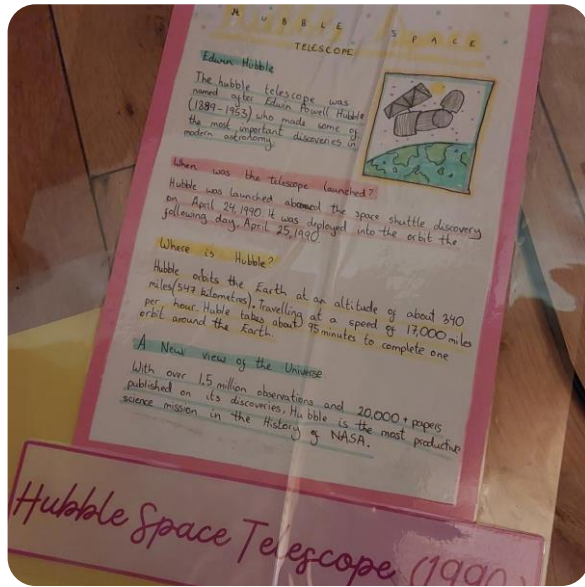 HUBBLE SPACE
TELESCOPE
Edwin Hubble
The hubble telescope was
named after Edwin Powell Hubble
(1889-1953) who made some of
the most important discoveries in
modern astronomy.
When was the telescope launched?
Hubble was launched aboared the space shuttle discovery
on April 24, 1990 It was deployed into the orbit the
following day, April 25, 1990
Where is Hubble?
Hubble orbits the Earth at an altitude of about 340
miles (547 kilometres). Travelling at a speed of 17,000 miles
per hour. Huble takes about 95 minutes to complete one
orbit around the Earth.
A New view of the Universe
With over 1.5 million observations and 20,000 + papers
published on its discoveries, Hubble is the most productive
science mission in the History of NASA.
Hubble Space Telescope (1990